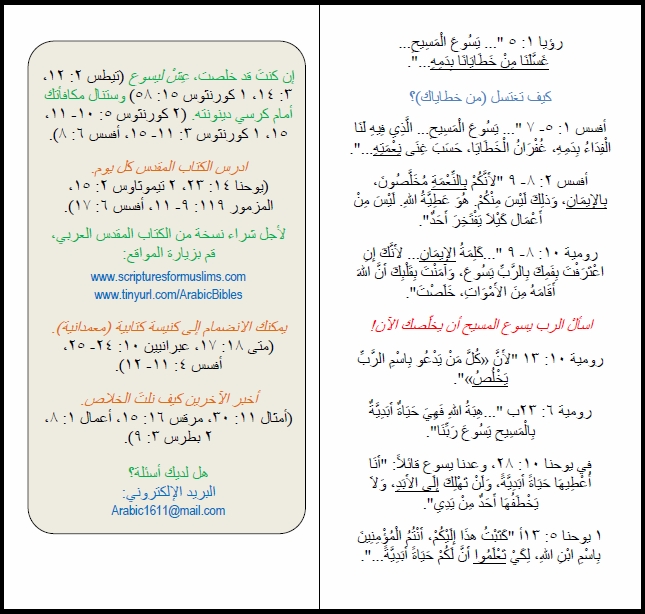 رؤيا ١: ٥ "... يَسُوعَ الْمَسِيحِ...
غَسَّلَنَا مِنْ خَطَايَانَا بِدَمِهِ...".
كيف تغتسل (من خطاياك)؟
أفسس ١: ٥- ٧ "... يَسُوعَ الْمَسِيحِ... الَّذِي فِيهِ لَنَا
الْفِدَاءُ بِدَمِهِ، غُفْرَانُ الْخَطَايَا، حَسَبَ غِنَى نِعْمَتِهِ...".
أفسس ٢: ٨- ٩ "لأَنَّكُمْ بِالنِّعْمَةِ مُخَلَّصُونَ،
بِالإِيمَانِ، وَذلِكَ لَيْسَ مِنْكُمْ. هُوَ عَطِيَّةُ اللهِ. لَيْسَ مِنْ
أَعْمَال كَيْلاَ يَفْتَخِرَ أَحَدٌ".
رومية ١٠: ٨- ٩ "...كَلِمَةُ الإِيمَانِ... لأَنَّكَ إِنِ
اعْتَرَفْتَ بِفَمِكَ بِالرَّبِّ يَسُوعَ، وَآمَنْتَ بِقَلْبِكَ أَنَّ اللهَ
أَقَامَهُ مِنَ الأَمْوَاتِ، خَلَصْتَ".
اسألْ الرب يسوع المسيح أن يخلّصك الآن!
رومية ١٠: ١٣ "لأَنَّ «كُلَّ مَنْ يَدْعُو بِاسْمِ الرَّبِّ
يَخْلُصُ»".
رومية ٦: ٢٣ب "...هِبَةُ اللهِ فَهِيَ حَيَاةٌ أَبَدِيَّةٌ
بِالْمَسِيحِ يَسُوعَ رَبِّنَا".
في يوحنا ١٠: ٢٨، وعدنا يسوع قائلاً: "أَنَا
أُعْطِيهَا حَيَاةً أَبَدِيَّةً، وَلَنْ تَهْلِكَ إِلَى الأَبَدِ، وَلاَ
يَخْطَفُهَا أَحَدٌ مِنْ يَدِي".
١ يوحنا ٥: ١٣أ "كَتَبْتُ هذَا إِلَيْكُمْ، أَنْتُمُ الْمُؤْمِنِينَ
بِاسْمِ ابْنِ اللهِ، لِكَيْ تَعْلَمُوا أَنَّ لَكُمْ حَيَاةً أَبَدِيَّةً...".
إن كنتَ قد خلصت، عِشْ ليسوع (تيطس ٢: ١٢،
٣: ١٤، ١ كورنثوس ١٥: ٥٨) وستنال مكافأتك
أمام كرسي دينونته. (٢ كورنثوس ٥: ١٠- ١١،
١٥، ١ كورنثوس ٣: ١١- ١٥، أفسس ٦: ٨).
ادرس الكتاب المقدس كل يوم.
(يوحنا ١٤: ٢٣، ٢ تيموثاوس ٢: ١٥،
المزمور ١١٩: ٩- ١١، أفسس ٦: ١٧).
لأجل شراء نسخة من الكتاب المقدس العربي،
قم بزيارة المواقع:
www.scripturesformuslims.com
www.tinyurl.com/ArabicBibles
يمكنك الانضمام إلى كنيسة كتابية (معمدانية).
(متى ١٨: ١٧، عبرانيين ١٠: ٢٤- ٢٥،
أفسس ٤: ١١- ١٢).
أخبر الآخرين كيف نلتَ الخلاص.
(أمثال ١١: ٣٠، مرقس ١٦: ١٥، أعمال ١: ٨،
٢ بطرس ٣: ٩).
هل لديك أسئلة؟
البريد الإلكتروني:
Arabic1611@mail.com